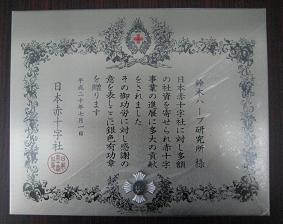 鈴木ハーブ研究所 様
日本赤十字社に対し多額
の社資を寄せられ赤十字
事業の進展に多大の貢献
をされました
その御功労に対し感謝の
意を表しここに銀色有功章
を贈ります
平成二十年七月一日
日本赤十字社